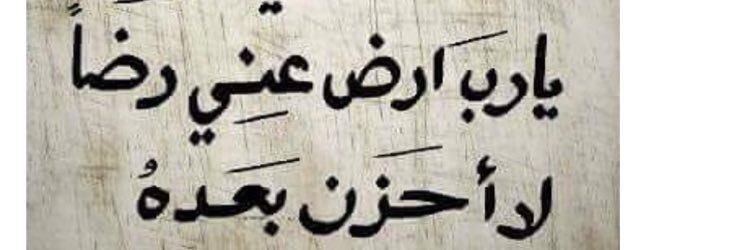 ياربَ ارضَ عنِّي رضاً
لا أحزَن بَعدهُ